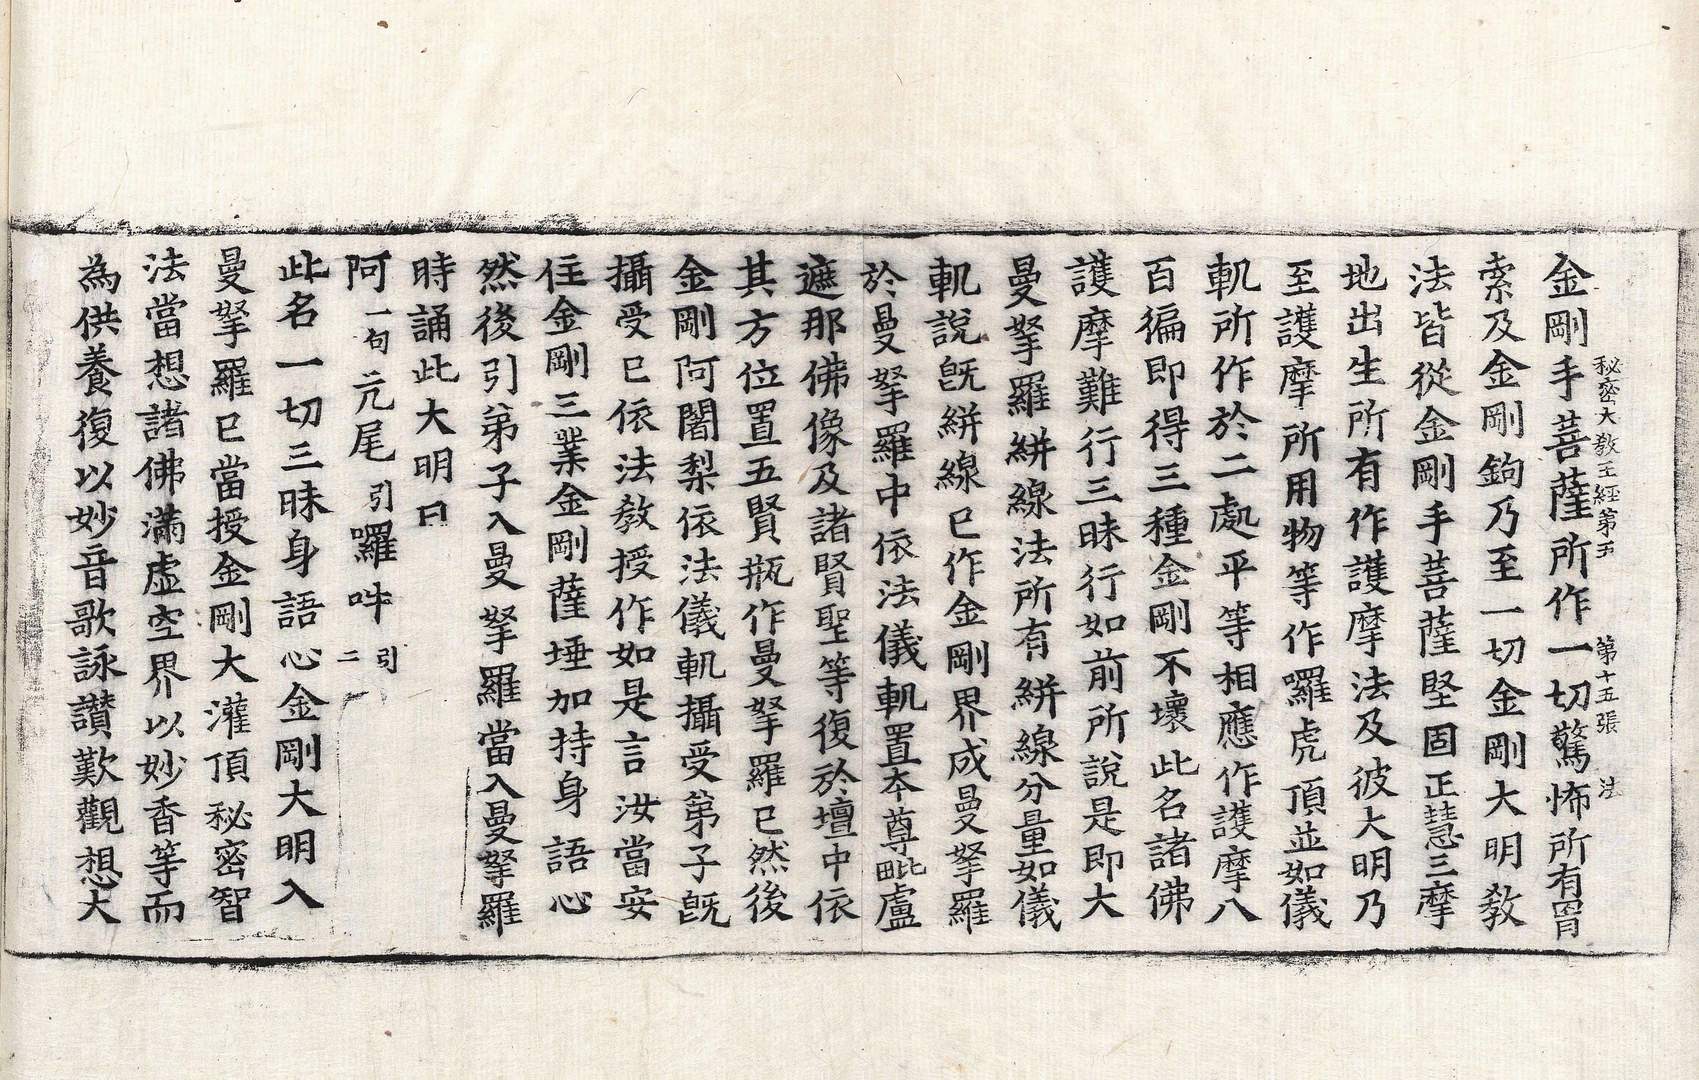 秘密大教王經第五 第十五張 法
金剛手菩薩所作一切驚怖所有罥
索及金剛鉤乃至一切金剛大明敎
法皆從金剛手菩薩堅固正慧三摩
地出生所有作護摩法及彼大明乃
至護摩所用物等作囉虎頂並如儀
軌所作於二處平等相應作護摩八
百徧即得三種金剛不壞此名諸佛
護摩難行三昧行如前所說是即大
曼拏羅絣線法所有絣線分量如儀
軌說旣絣線已作金剛界成曼拏羅
於曼拏羅中依法儀軌置本尊毗盧
遮那佛像及諸賢聖等復於壇中依
其方位置五賢瓶作曼拏羅已然後
金剛阿闍梨依法儀軌攝受弟子旣
攝受已依法敎授作如是言汝當安
住金剛三業金剛薩埵加持身語心
然後引弟子入曼拏羅當入曼拏羅
時誦此大明曰
阿一句亢尾引囉吽引二
此名一切三昧身語心金剛大明入
曼拏羅已當授金剛大灌頂秘密智
法當想諸佛滿虛空界以妙香等而
為供養復以妙音歌詠讚歎觀想大